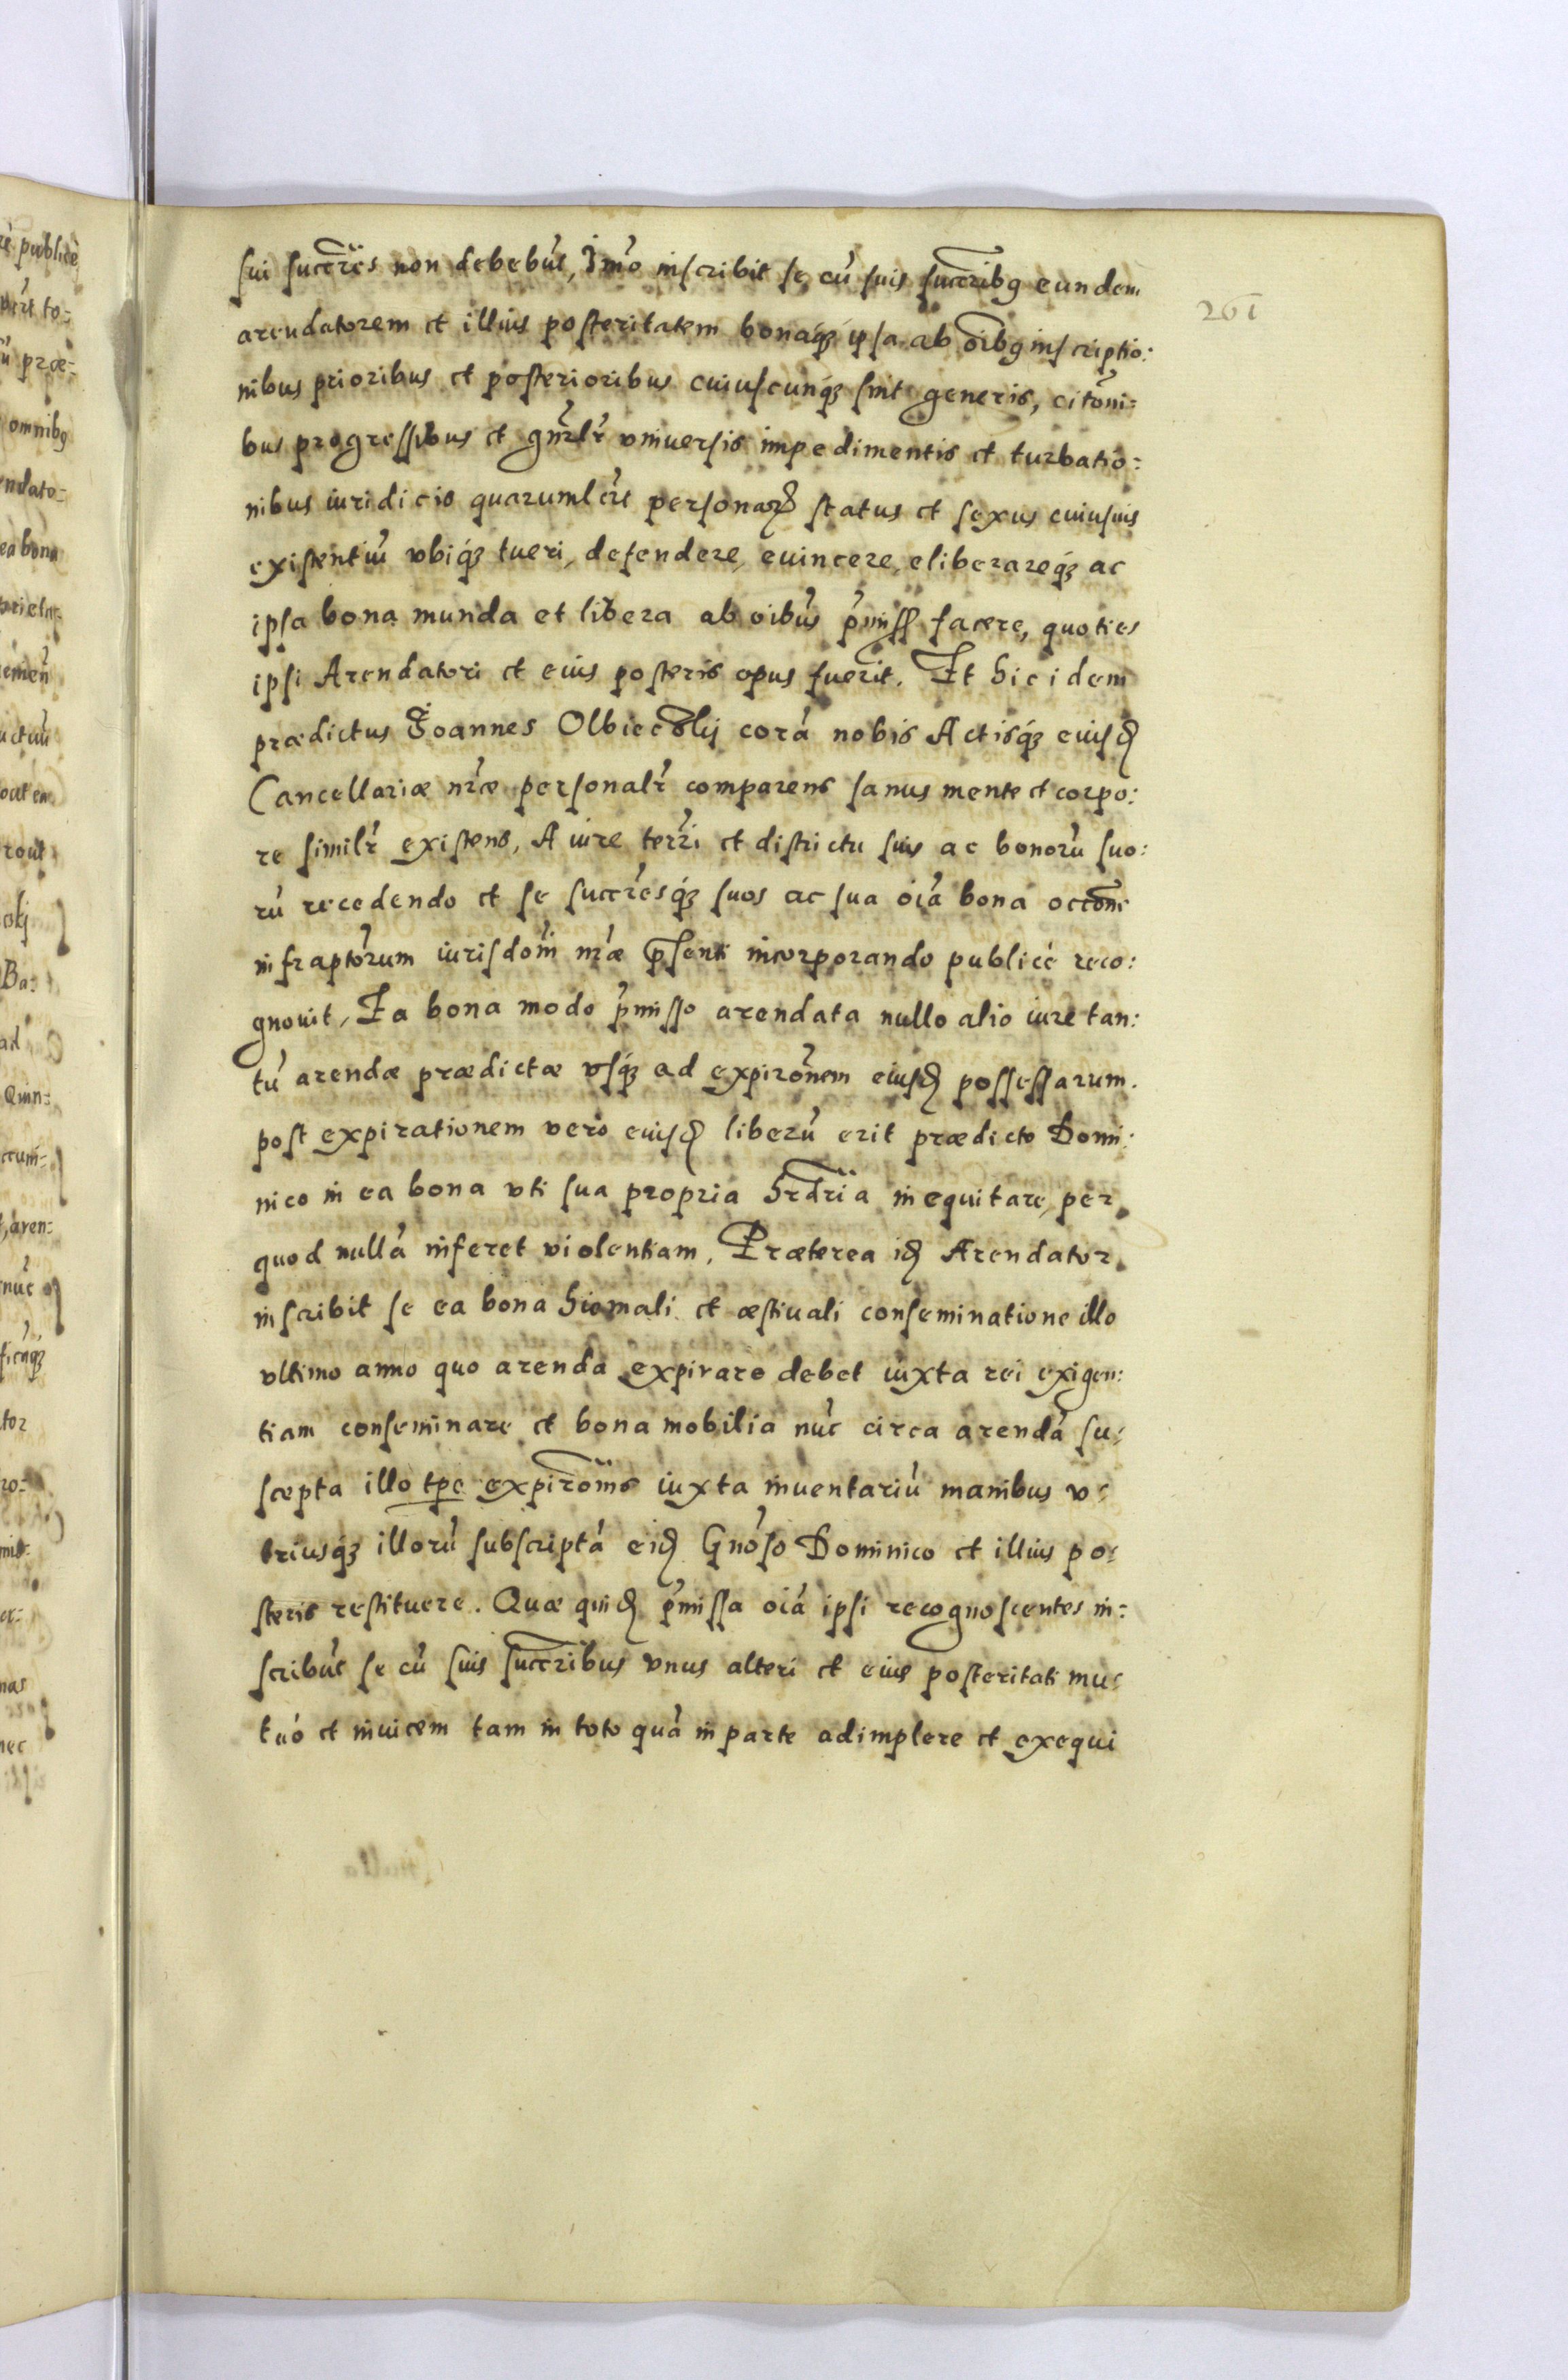 261
sui succr̃es non debebũt, Imo inscribit se cũ suis succr̃ibꝯ eundem
arendatorem et illius posteritatem bonaqꝫ ipsa ab oĩbꝯ inscriptio:
nibus prioribus et posterioribus cuiuscunqꝫ sint generis, citõni:
bus progressibus et gñrlr̃ vniuersis impedimentis et turbatio:
nibus iuridicis quarumlib̃t personarꝝ status et sexus cuiusuis
existentiũ vbiqꝫ tueri, defendere, euincere, eliberareqꝫ ac
ipsa bona munda et libera ab oĩbus p̃miss facere, quoties
ipsi Arendatori et eius posteris opus fuerit. Et hic idem
prædictus Joannes Olbiecõlij corã nobis Actisqꝫ eiusđ
Cancellariæ nr̃æ personalr̃ comparens sanus mente et corpo:
re similr̃ existens, A iure terr̃i et districtu suis ac bonorũ suo:
rũ recedendo et se succr̃esqꝫ suos ac sua oĩa bona occõne
infraptõrum iurisdõni nr̃æ p̃senti incorporando publicè reco:
gnouit, Ea bona modo p̃misso arendata nullo alio iure tan:
tũ arendæ prædictæ vsqꝫ ad expirõnem eiusđ possessarum.
post expirationem vero eiusđ liberũ erit prædicto Domi:
nico in ea bona vti sua propria hrdr̃ia inequitare, per
quod nullã inferet violentiam. Præterea iđ Arendator
inscribit se ea bona hiemali et æstiuali conseminatione illo
vltimo anno quo arenda expirare debet iuxta rei exigen:
tiam conseminare et bona mobilia nũc circa arendã su:
scepta illo tp̃e expirõnis iuxta inuentariũ manibus v:
triusqꝫ illorũ subscriptã eiđ Gnõso Dominico et illius po:
steris restituere. Quæ quiđ p̃missa oĩa ipsi recognoscentes in:
scribũt se cũ suis succr̃ibus vnus alteri et eius posteritati mu:
tuó et inuicem tam in toto quã in parte adimplere et exequi